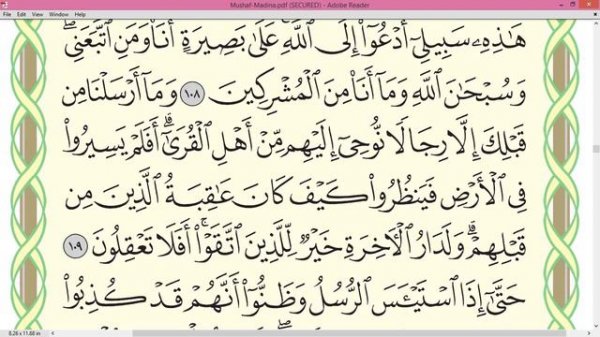 Mushaf-Madina.pdf (SECURED) - Adobe Reader
File Edit View Window Help
هَٰذِهِۦ سَبِيلِىٓ أَدْعُوٓا۟ إِلَى ٱللَّهِ عَلَىٰ بَصِيرَةٍ أَنَا۠ وَمَنِ ٱتَّبَعَنِى ۖ
وَسُبْحَٰنَ ٱللَّهِ وَمَآ أَنَا۠ مِنَ ٱلْمُشْرِكِينَ ١٠٨ وَمَآ أَرْسَلْنَا مِن
قَبْلِكَ إِلَّا رِجَالًا نُّوحِىٓ إِلَيْهِم مِّنْ أَهْلِ ٱلْقُرَىٰٓ ۗ أَفَلَمْ يَسِيرُوا۟
فِى ٱلْأَرْضِ فَيَنظُرُوا۟ كَيْفَ كَانَ عَٰقِبَةُ ٱلَّذِينَ مِن
قَبْلِهِمْ ۗ وَلَدَارُ ٱلْءَاخِرَةِ خَيْرٌ لِّلَّذِينَ ٱتَّقَوْا۟ ۗ أَفَلَا تَعْقِلُونَ ١٠٩
حَتَّىٰٓ إِذَا ٱسْتَيْـَٔسَ ٱلرُّسُلُ وَظَنُّوٓا۟ أَنَّهُمْ قَدْ كُذِبُوا۟
8.26 x 11.68 in